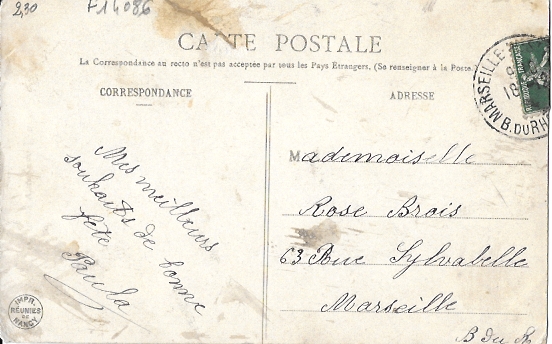 2,30
F14086
CARTE POSTALE
La Correspondance au recto n'est pas acceptée par tous les Pays Etrangers. (Se renseigner à la Poste.)
CORRESPONDANCE
Mes meilleurs
souhaits de bonne
fête
Paula
IMPR.
RÉUNIES
DE
NANCY
ADRESSE
MARSEILLE
B. DU RH
Mademoiselle
Rose Brois
63 Rue Sylvabelle
Marseille
B du Rh